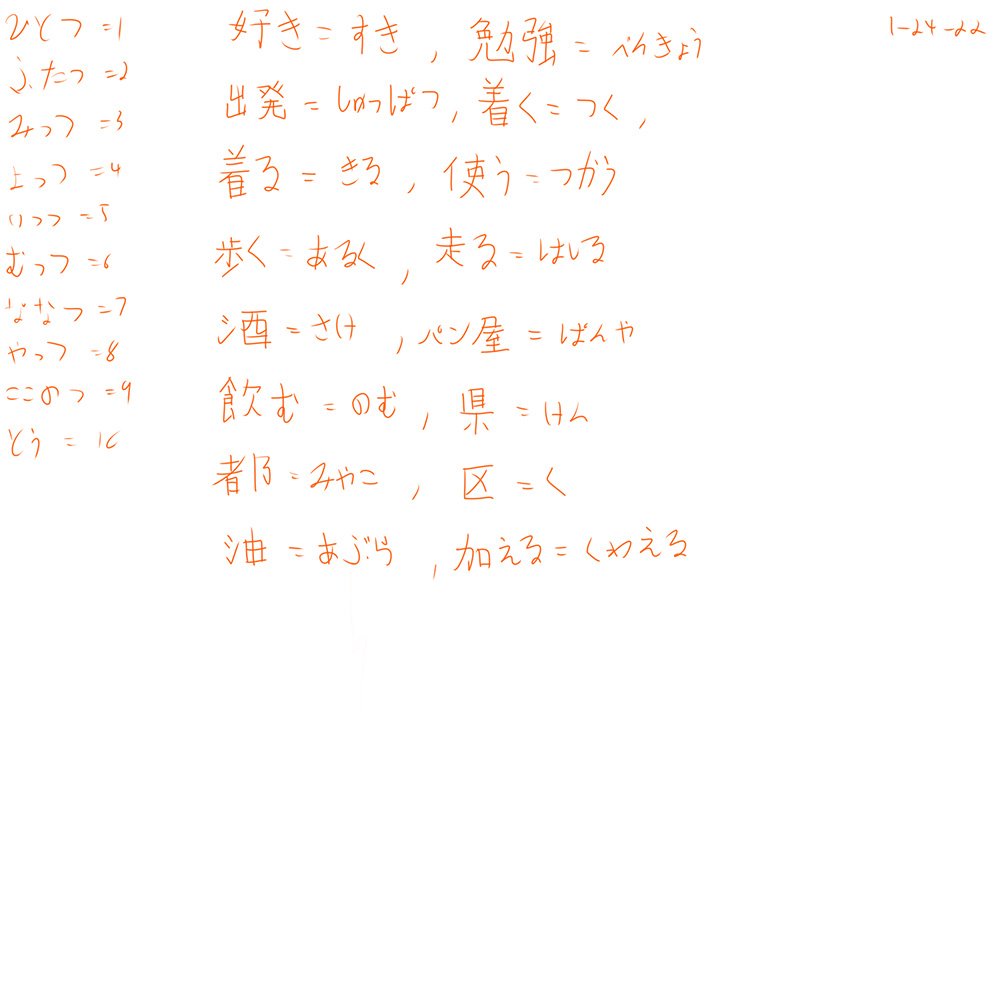 ひとつ =1
ふたつ =2
みっつ =3
よっつ =4
いっつ =5
むっつ =6
ななつ =7
やっつ =8
ここのつ =9
とう = 10
好き = すき , 勉強 = べんきょう
出発 = しゅっぱつ, 着く = つく,
着る = きる , 使う = つかう
歩く = あるく , 走る = はしる
酒 = さけ , パン屋 = ぱんや
飲む = のむ , 県 = けん
都 = みやこ , 区 = く
油 = あぶら , 加える = くわえる
1-24-22